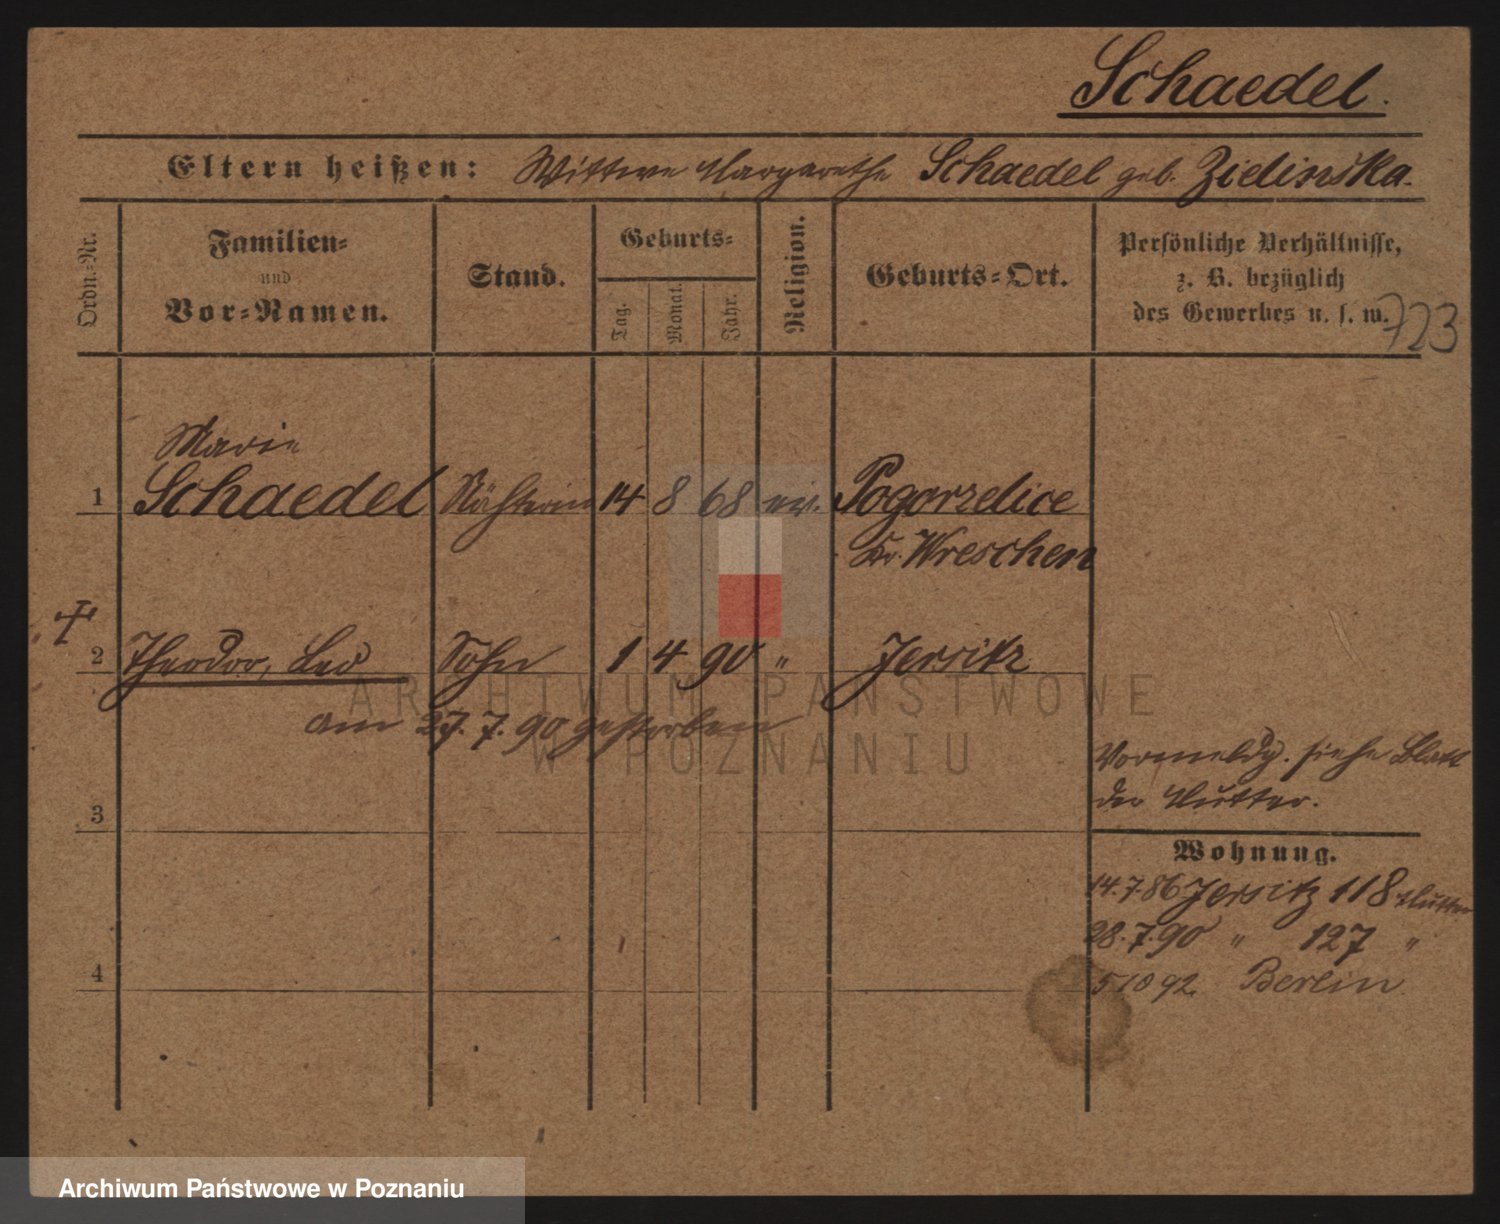 Schaedel.
Eltern heißen: Wittwe Margarethe Schaedel geb. Zielinska.
Ordn.-Nr.
Familien-
und
Vor-Namen.
Stand.
Geburts-
Tag.
Monat.
Jahr.
Religion.
Geburts-Ort.
Persönliche Verhältnisse,
z. B. bezüglich
des Gewerbes u. s. w.
723
Marie
1 Schaedel Nähterin 14 8 68 ev. Pogorzelice
Kr. Wreschen
2 Theodor, Leo Sohn 1 4 90 " Jersitz
am 27.7.90 gestorben
Vormeldg. siehe Blatt
der Mutter.
3
Wohnung.
14.7.86 Jersitz 118 Mutter
28.7.90 " 127 "
4
5 10 92 Berlin
ARCHIWUM PAŃSTWOWE
W POZNANIU
Archiwum Państwowe w Poznaniu